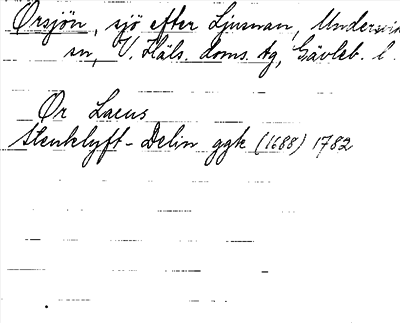 Örsjön, sjö efter Ljusnan, Undersvik
sn, V. Häls. doms. tg, Gävleb. l.
Ör Lacus
Stenklyft-Delin ggk (1688) 1782